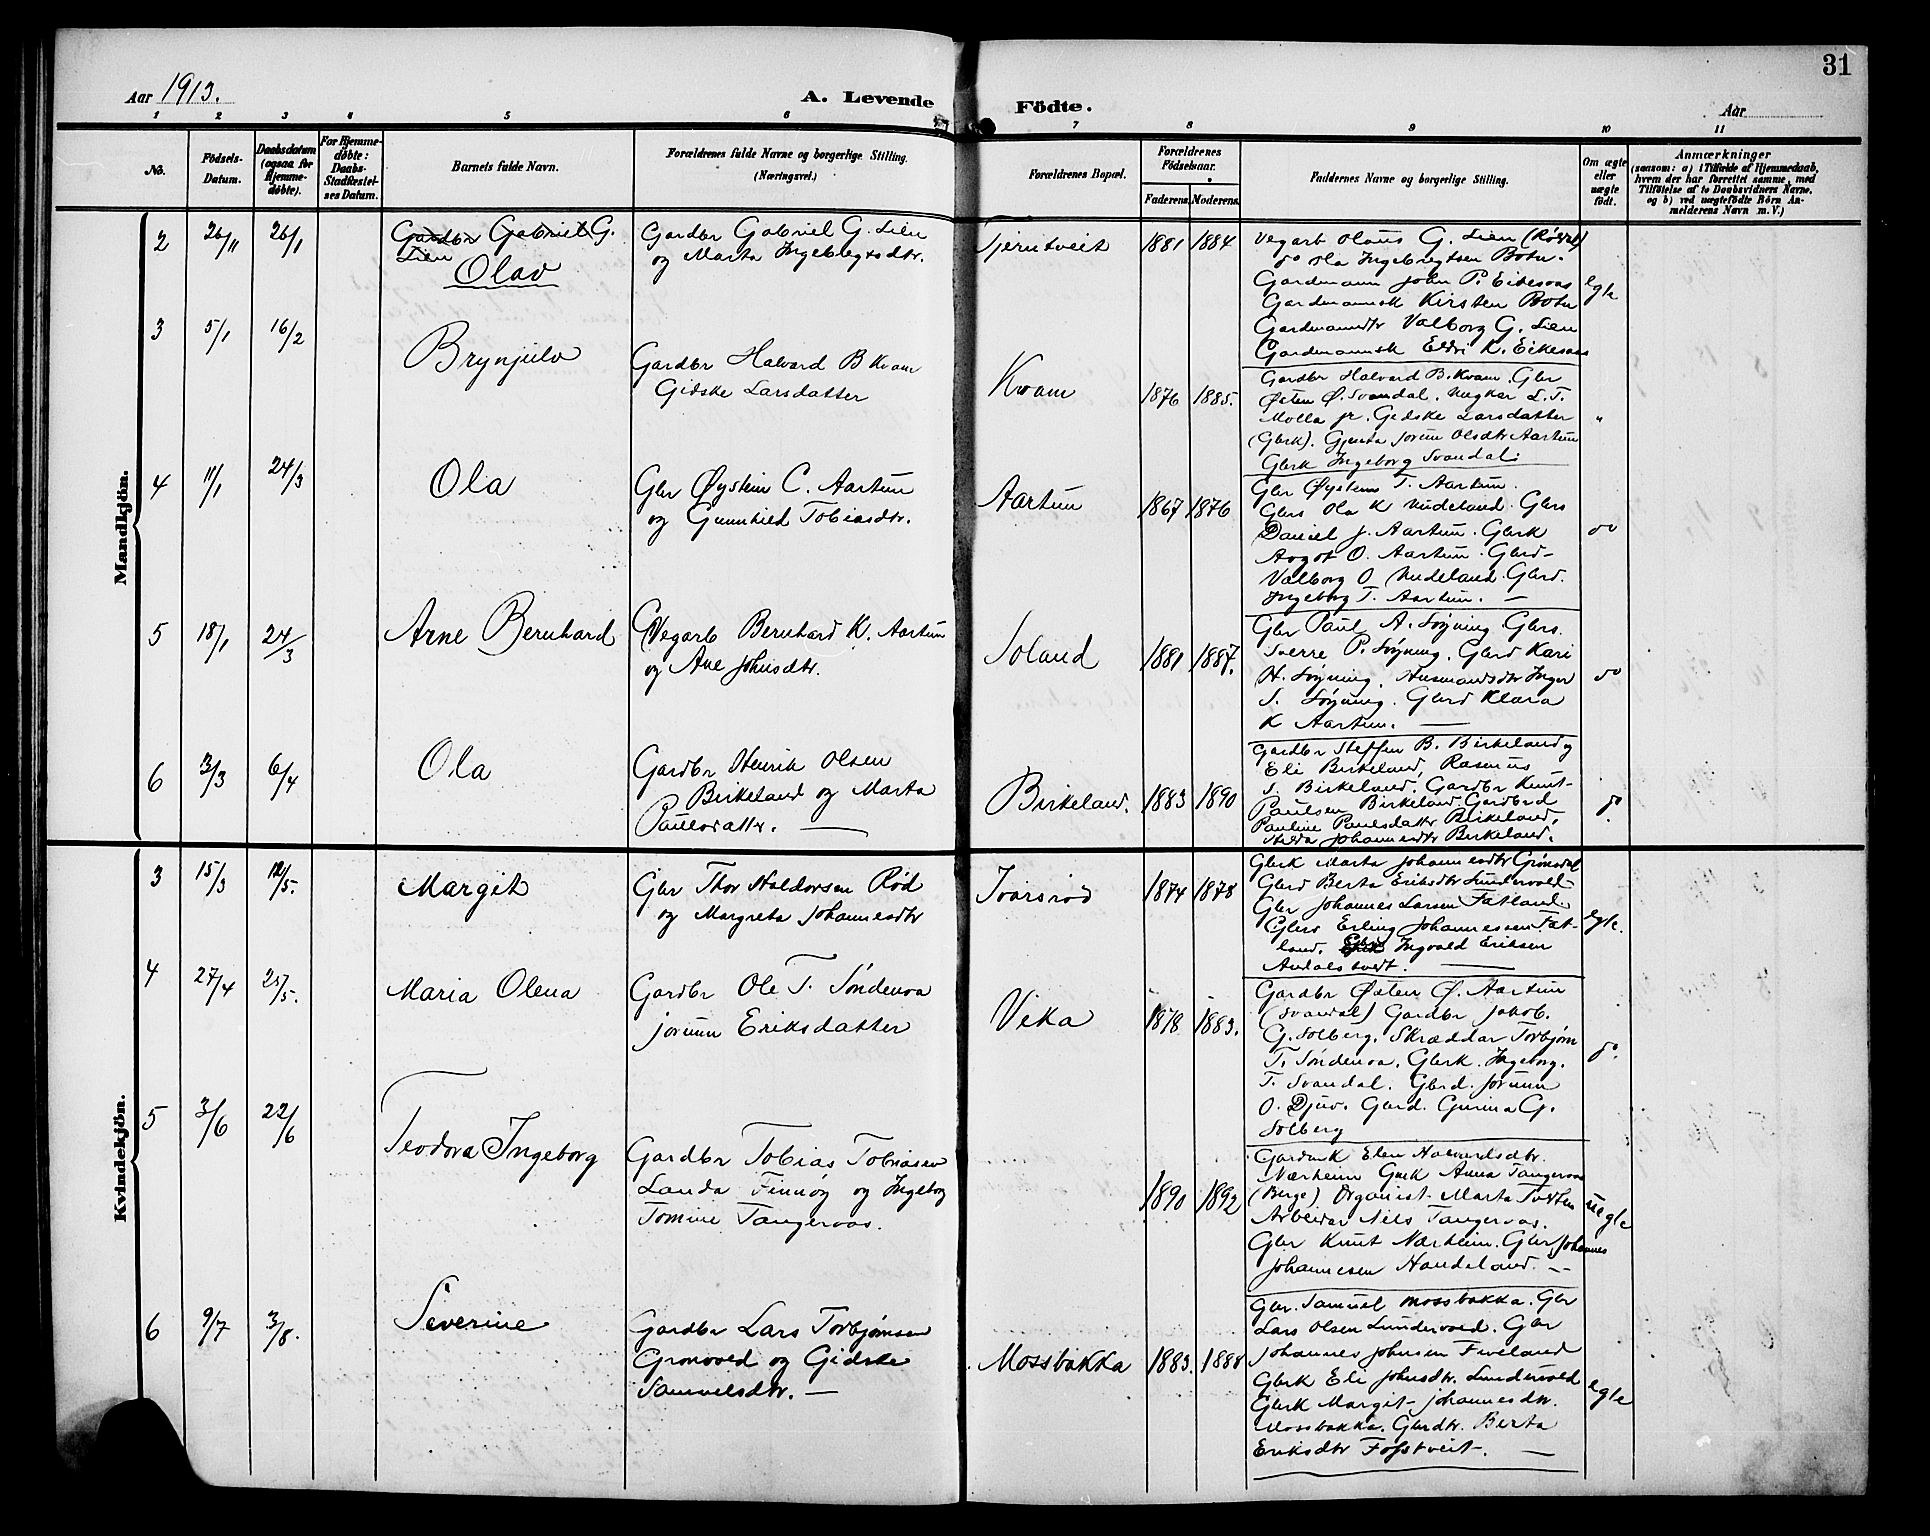 31
Aar 1913.
A. Levende Födte.
Aar
1 2 3 4 5 6 7 8 9 10 11
No.
Födsels-Datum.
Daabsdatum (ogsaa for Hjemmedöbte).
For Hjemmedöbte: Daabs-Stadfæstelses Datum.
Barnets fulde Navn.
Forældrenes fulde Navne og borgerlige Stilling. (Næringsvei.)
Forældrenes Bopæl.
Forældrenes Födselsaar.
Faderens. Moderens.
Faddernes Navne og borgerlige Stilling.
Om ægte eller uægte födt.
Anmærkninger
(saasom: a) i Tilfælde af Hjemmedaab,
hvem der har forrettet samme, med
Tilföielse af to Daabsvidners Navne.
og b) ved uægtefödte Börn Anmelderens Navn m. V.)
Mandkjön.
2 26/11 26/1
Gardbr Gabriel G.
Lien
Olav
Gardbr Gabriel G. Lien
og Marta Ingebregtsdtr.
Tjerntveit 1881 1884
Vegarb Olaus G. Lien (Røvel)
do Ola Ingebregtsen Botn.
Gardmann John P. Eikesaas
Gardmannsk Kirsten Botn
Gardmanndtr Valborg G. Lien
Gardmannsk Eldri K. Eikesaas
egte
3 5/1 16/2
Brynjulv
Gardbr Halvard B Kvam
Gidske Larsdatter
Kvam 1876 1885.
Gardbr Halvard B. Kvam. Gbr
Østen Ø. Svandal. Ungkar L. T.
Molla jr. Gidske Larsdatter
(Gbrk). Gjenta Jorunn Olsdtr Aartun
Gbrk Ingeborg Svandal.
"
4 11/1 24/3
Ola
Gbr Øystein C. Aartun
og Gunnhild Tobiasdtr.
Aartun 1867 1876
Gbr Øystein T. Aartun.
Gbrs Ola K Nudeland. Gbrs
Daniel J. Aartun. Gbrk
Aagot O. Aartun. Gbrd-
Valborg O. Nudeland. Gbrd.
Ingeborg T. Aartun. —
do
5 18/1 24/3
Arne Bernhard
Vegarb Bernhard K. Aartun
og Ane Johnsdtr.
Soland 1881 1887.
Gbr Paul A. Søyning Gbrs.
Sverre P. Søyning. Gbrd Kari
H. Søyning. Husmandsdtr Inger
S. Søyning. Gbrd Klara
K Aartun. —
do
6 3/3 6/4
Ola
Gardbr Henrik Olsen
Birkeland og Marta
Paulsdattr. —
Birkeland. 1883 1890
Gardbr Steffen B. Birkeland og
Eli Birkeland, Rasmus
S. Birkeland. Gardbr Knut
Paulsen Birkeland. Gardbrd
Pauline Paulsdattr Birkeland,
Hilda Johannesdtr Birkeland.
do.
Kvindekjön.
3 15/3 12/5.
Margit
Gbr Thor Haldorsen Rød
og Margreta Johannesdtr
Ivarsrød 1874 1878
Gbrk Marta Johannesdtr Grønsdal
Gbrd Berta Eriksdtr Lundervold
Gbr Johannes Larsen Fatland
Gbrs Erling Johannessen Fat-
land. Gbrs Ingvald Eriksen
egte.
4 27/4 25/5.
Maria Olena
Gardbr Ole T. Søndenaa
Jorunn Eriksdatter
Vika 1878 1883.
Gardbr Østen Ø. Aartun
(Svandal) Gardbr Jakob.
G. Solberg. Skræddar Torbjørn
T. Søndenaa. Gbrk. Ingeborg.
T. Svandal. Gbrd. Jorunn
O. Djuv. Gbrd. Gurina G.
Solberg
do.
5 3/6 22/6
Teodora Ingeborg
Gardbr Tobias Tobiasen
Landa Finnøy og Ingeborg
Tomine Tangeraas.
1890 1892
Gardmk Elen Halvardsdtr.
Nærheim Gmk Anna Tangeraas
(Berge) Organist Marta
Arbeidar Nils Tangeraas.
Gbr Knut Nærheim. Gbr Johannes
Johannesen Handeland. —
uegte
6 9/7 3/8.
Severine
Gardbr Lars Torbjørnsen
Grønvold og Gidske
Samuelsdtr. —
Mossbakka 1883. 1888
Gbr. Samuel Mossbakka. Gbr
Lars Olsen Lundervold. Gbr
Johannes Johnsen Fiveland
Gbrk Eli Johnsdtr. Lundervold
Gbrk Margit Johannesdtr.
Mossbakka. Gbrdtr. Berta
Eriksdtr Fosstveit. —
egte